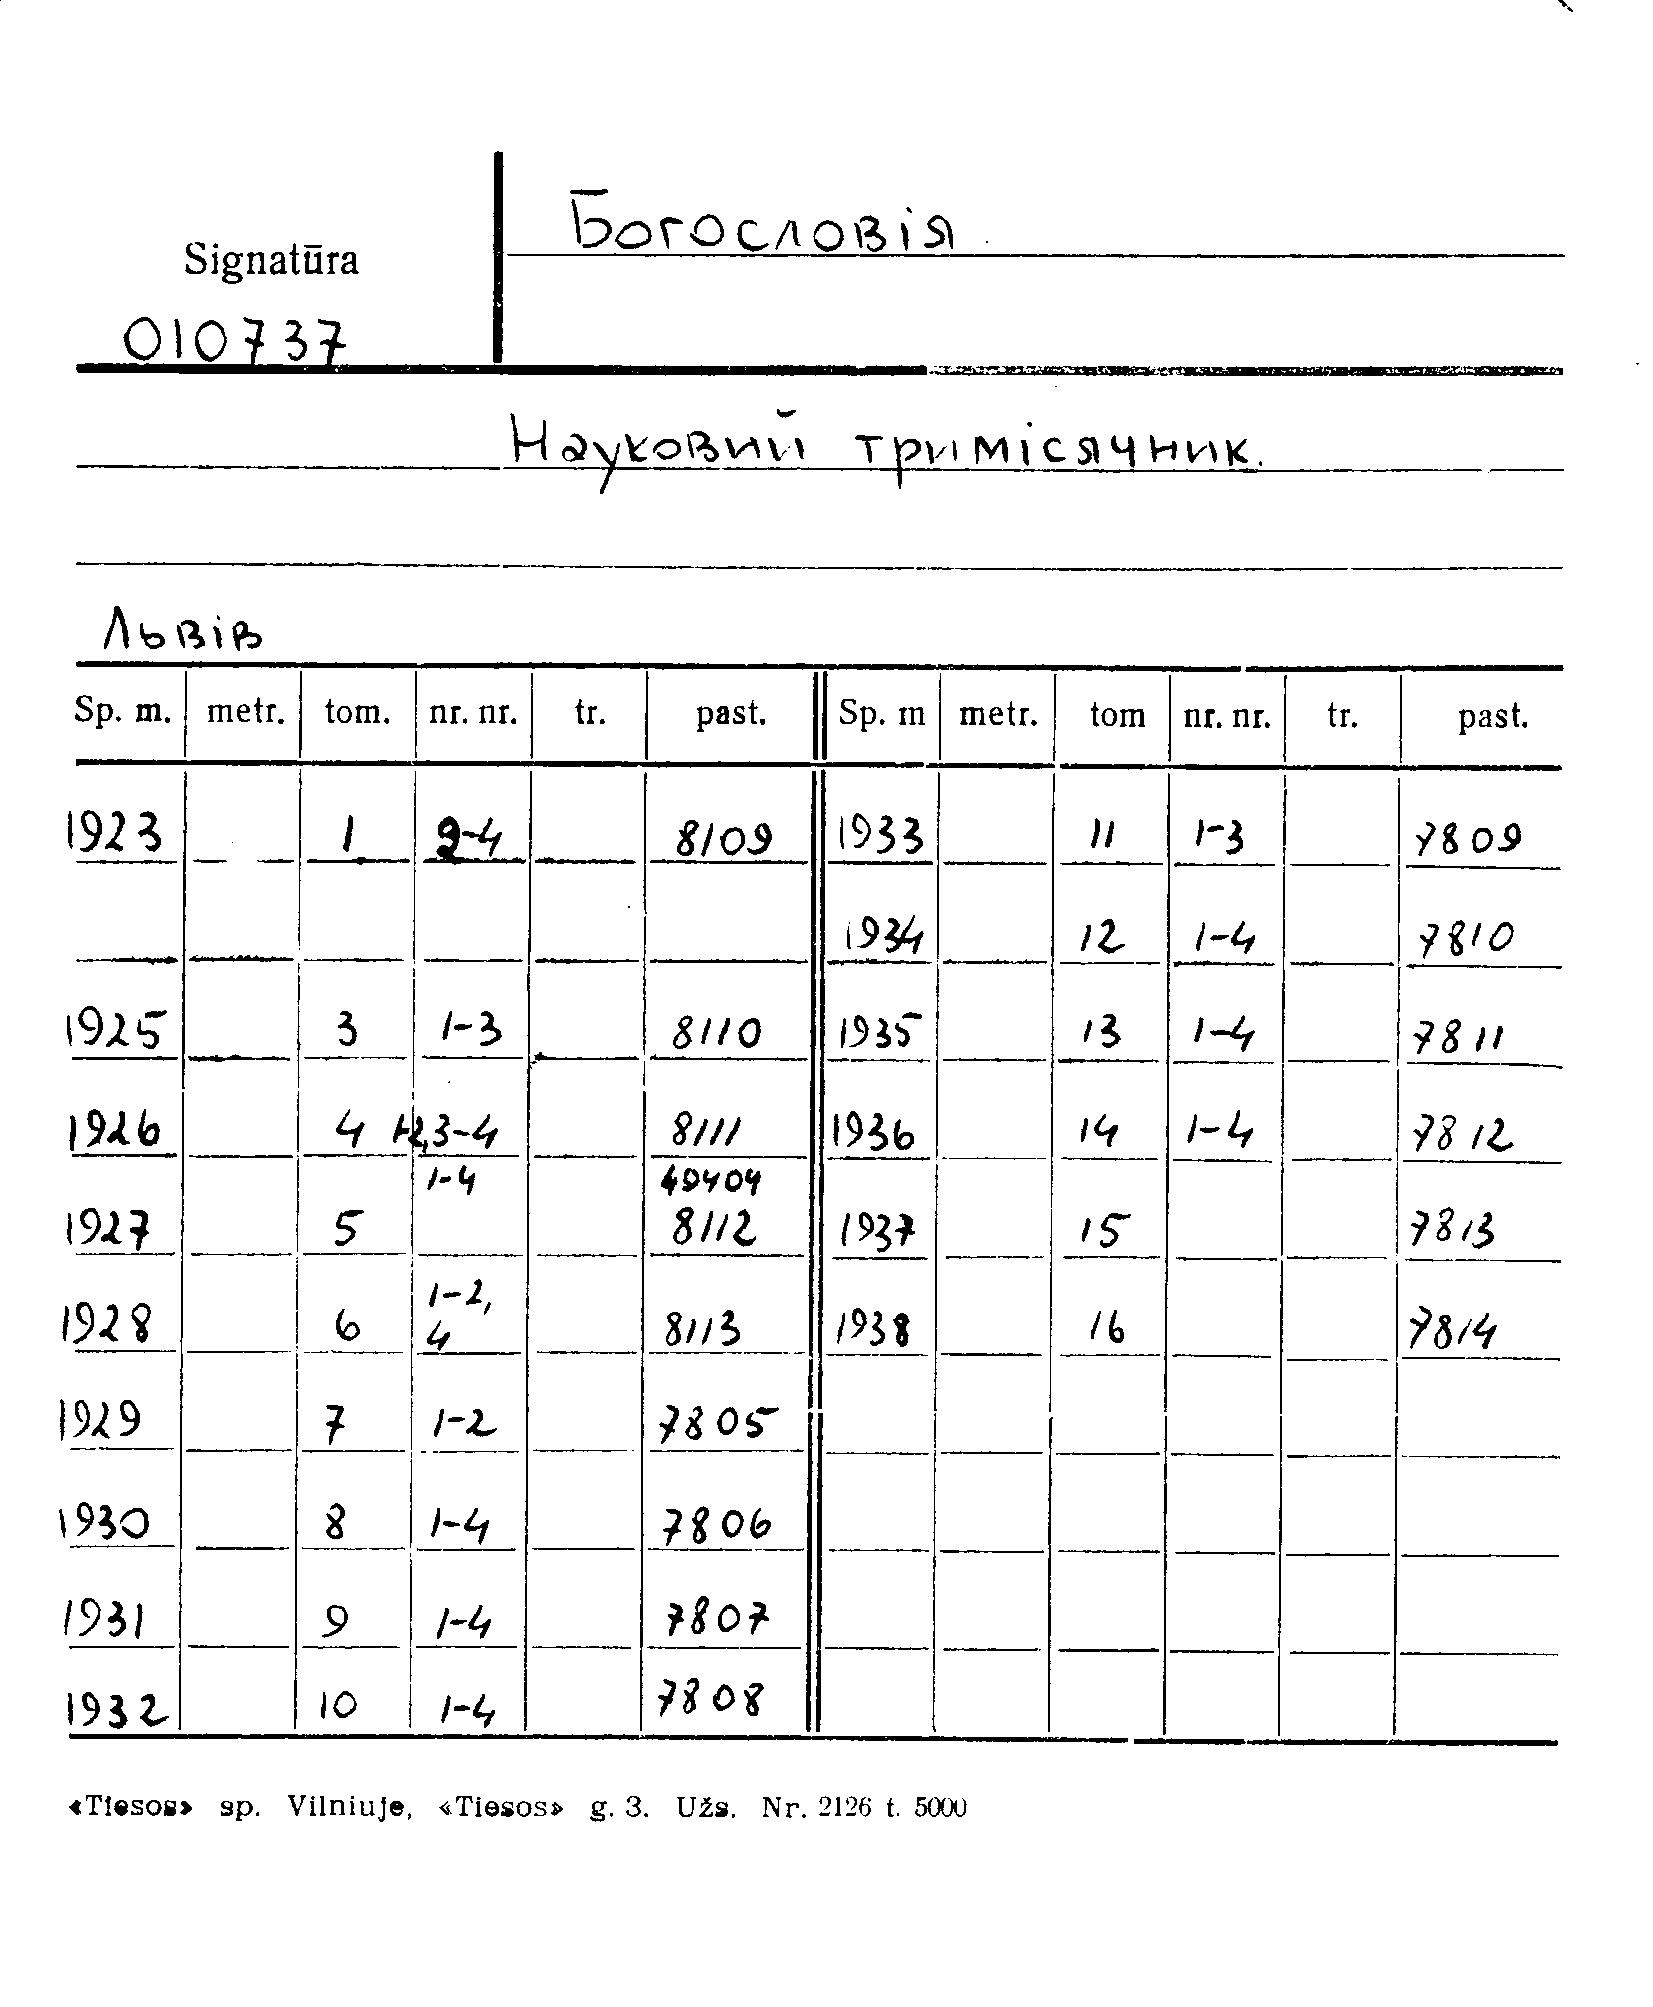 Богословія
Signatūra
010737
Науковий тримісячник.
Львів
Sp. m. metr. tom. nr. nr. tr. past. Sp. m metr. tom nr. nr. tr. past.
1923 1 2-4 8109 1933 11 1-3 7809
1934 12 1-4 7810
1925 3 1-3 8110 1935 13 1-4 7811
1926 4 1-2,3-4 8111 1936 14 1-4 7812
1-4 49404
1927 5 8112 1937 15 7813
1-2,
1928 6 4 8113 1938 16 7814
1929 7 1-2 7805
1930 8 1-4 7806
1931 9 1-4 7807
1932 10 1-4 7808
«Tiesos» sp. Vilniuje, «Tiesos» g. 3. Užs. Nr. 2126 t. 5000